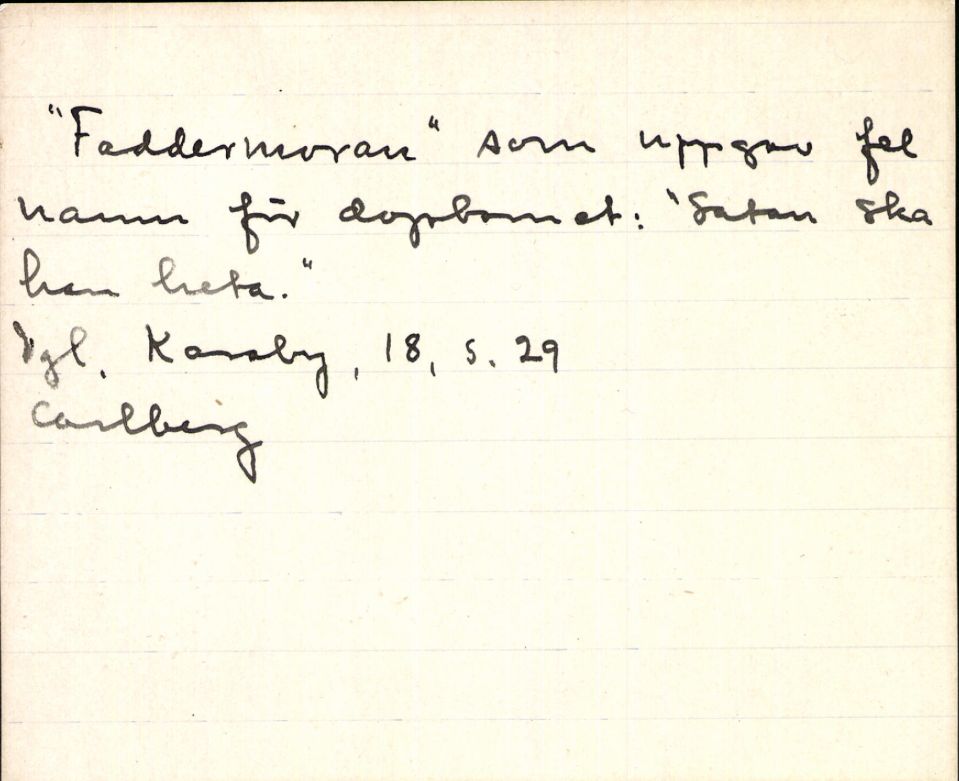 "Faddermoran" som uppgav fel
namn för dopbarnet: "Satan ska
han heta."
Vgl, Karaby, 18, s. 29
Carlberg